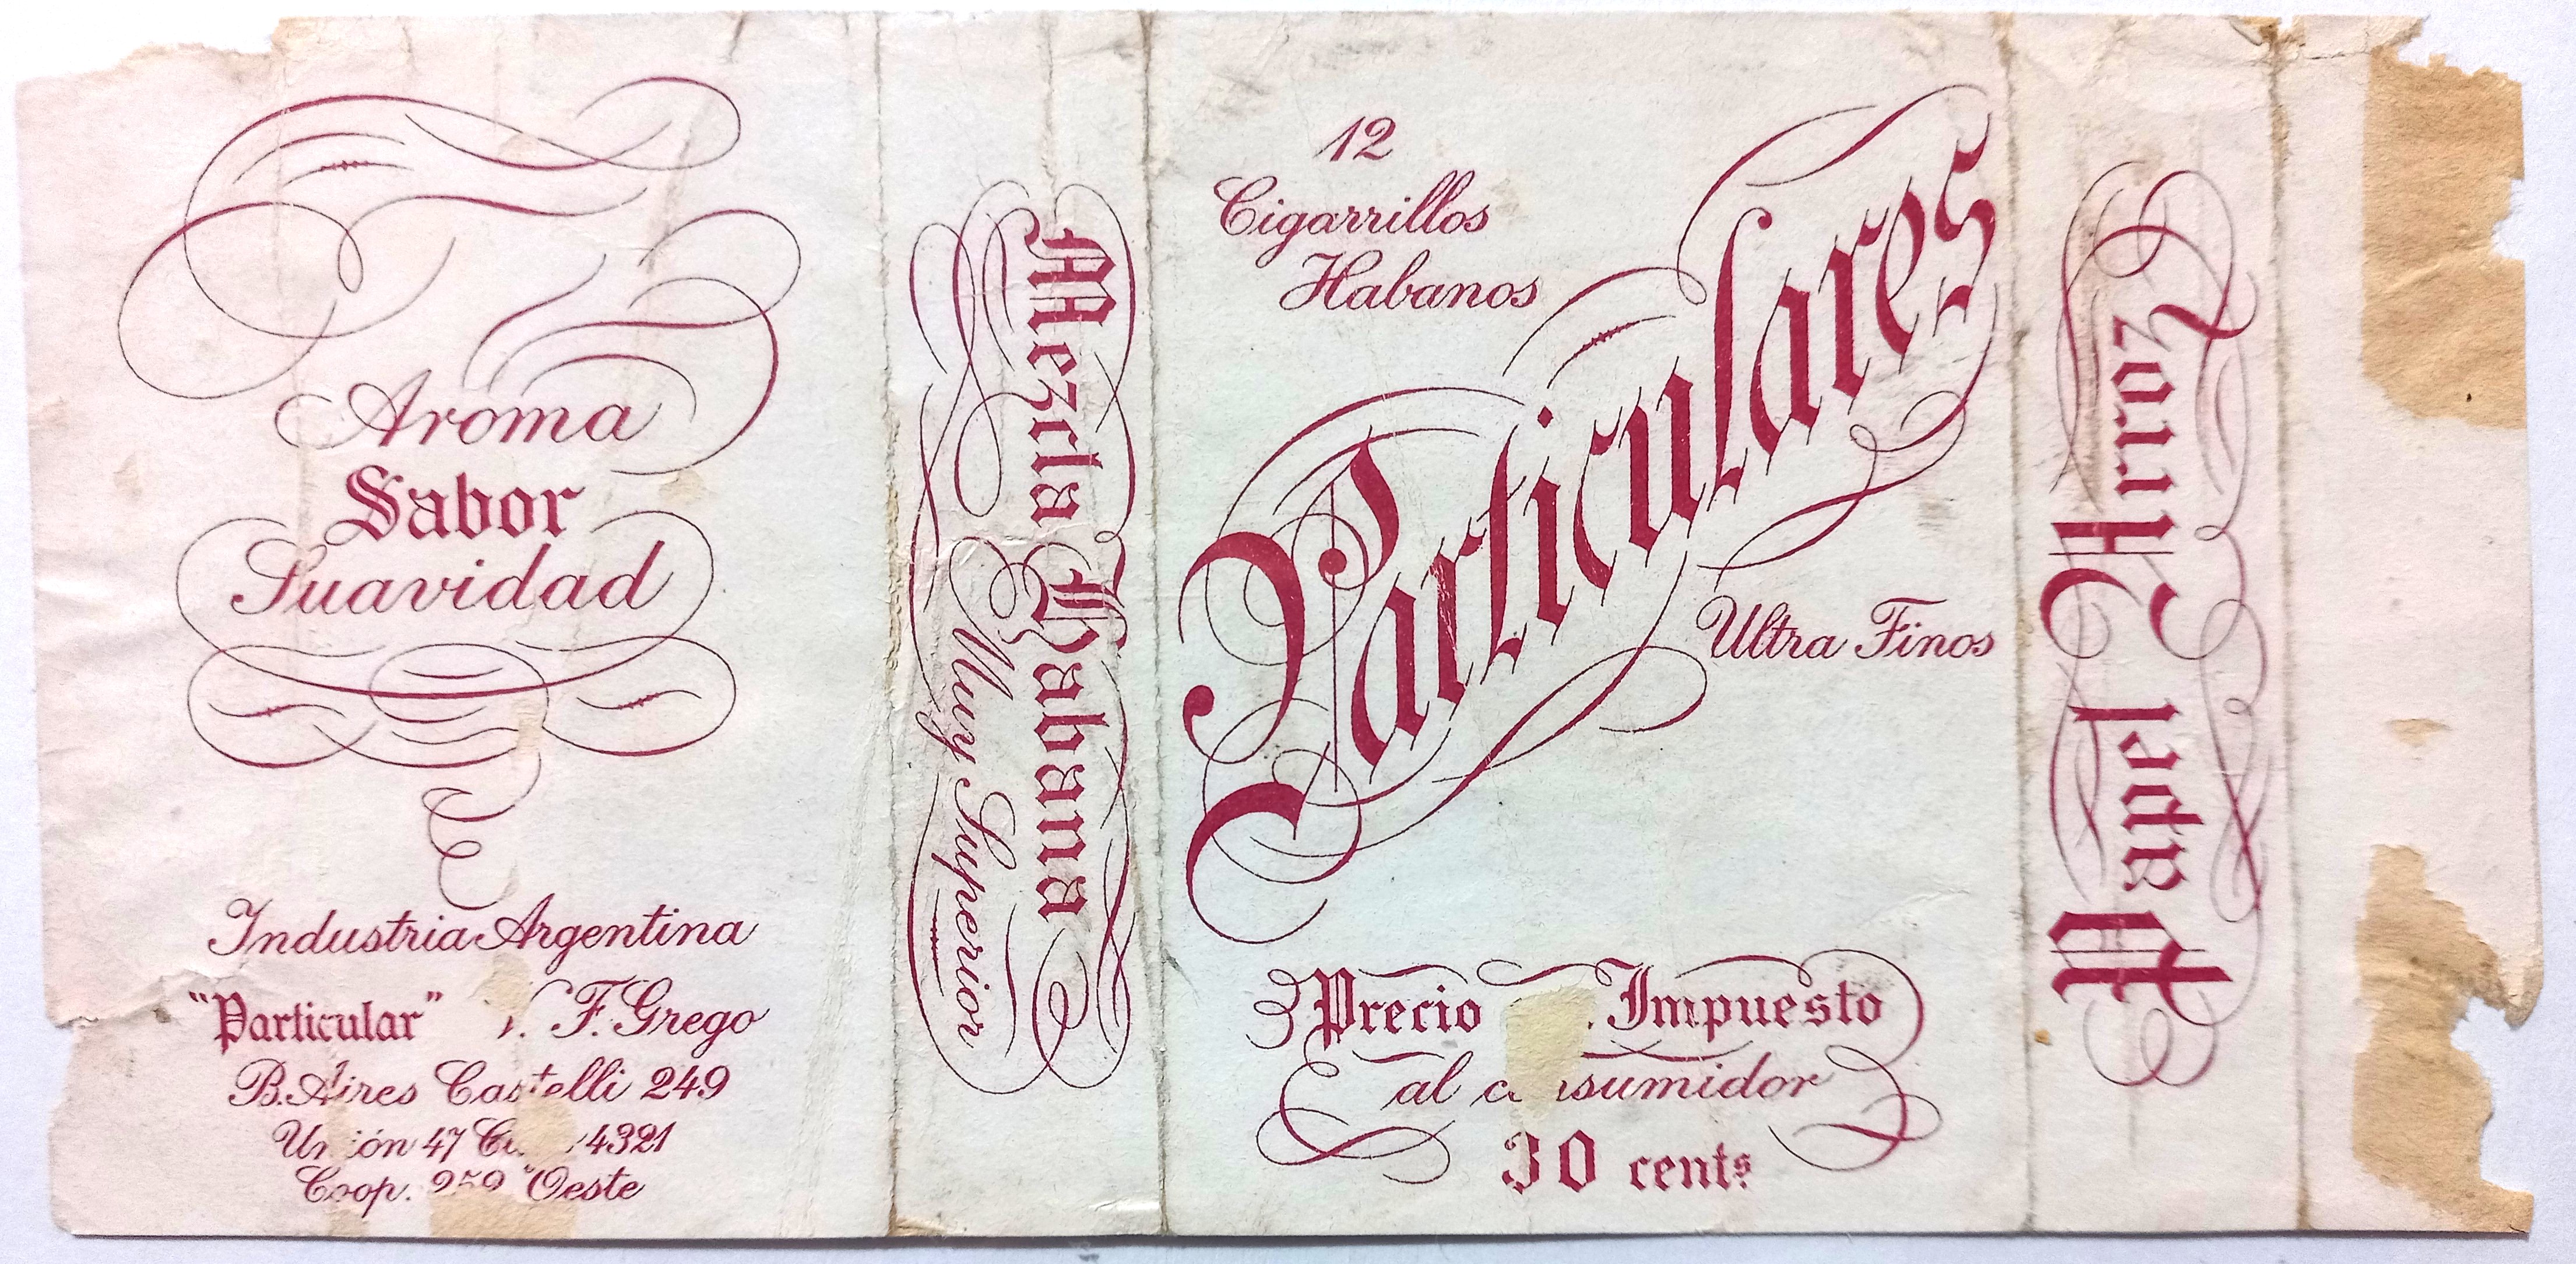 Aroma
Sabor
Suavidad
Industria Argentina
"Particular" V. F. Grego
B. Aires Castelli 249
Unión 47 4321
Coop. 259 Oeste
Mezcla Habana
Muy Superior
12
Cigarrillos
Habanos
Particulares
Ultra Finos
Precio Impuesto
al consumidor
30 cents
Papel Arroz